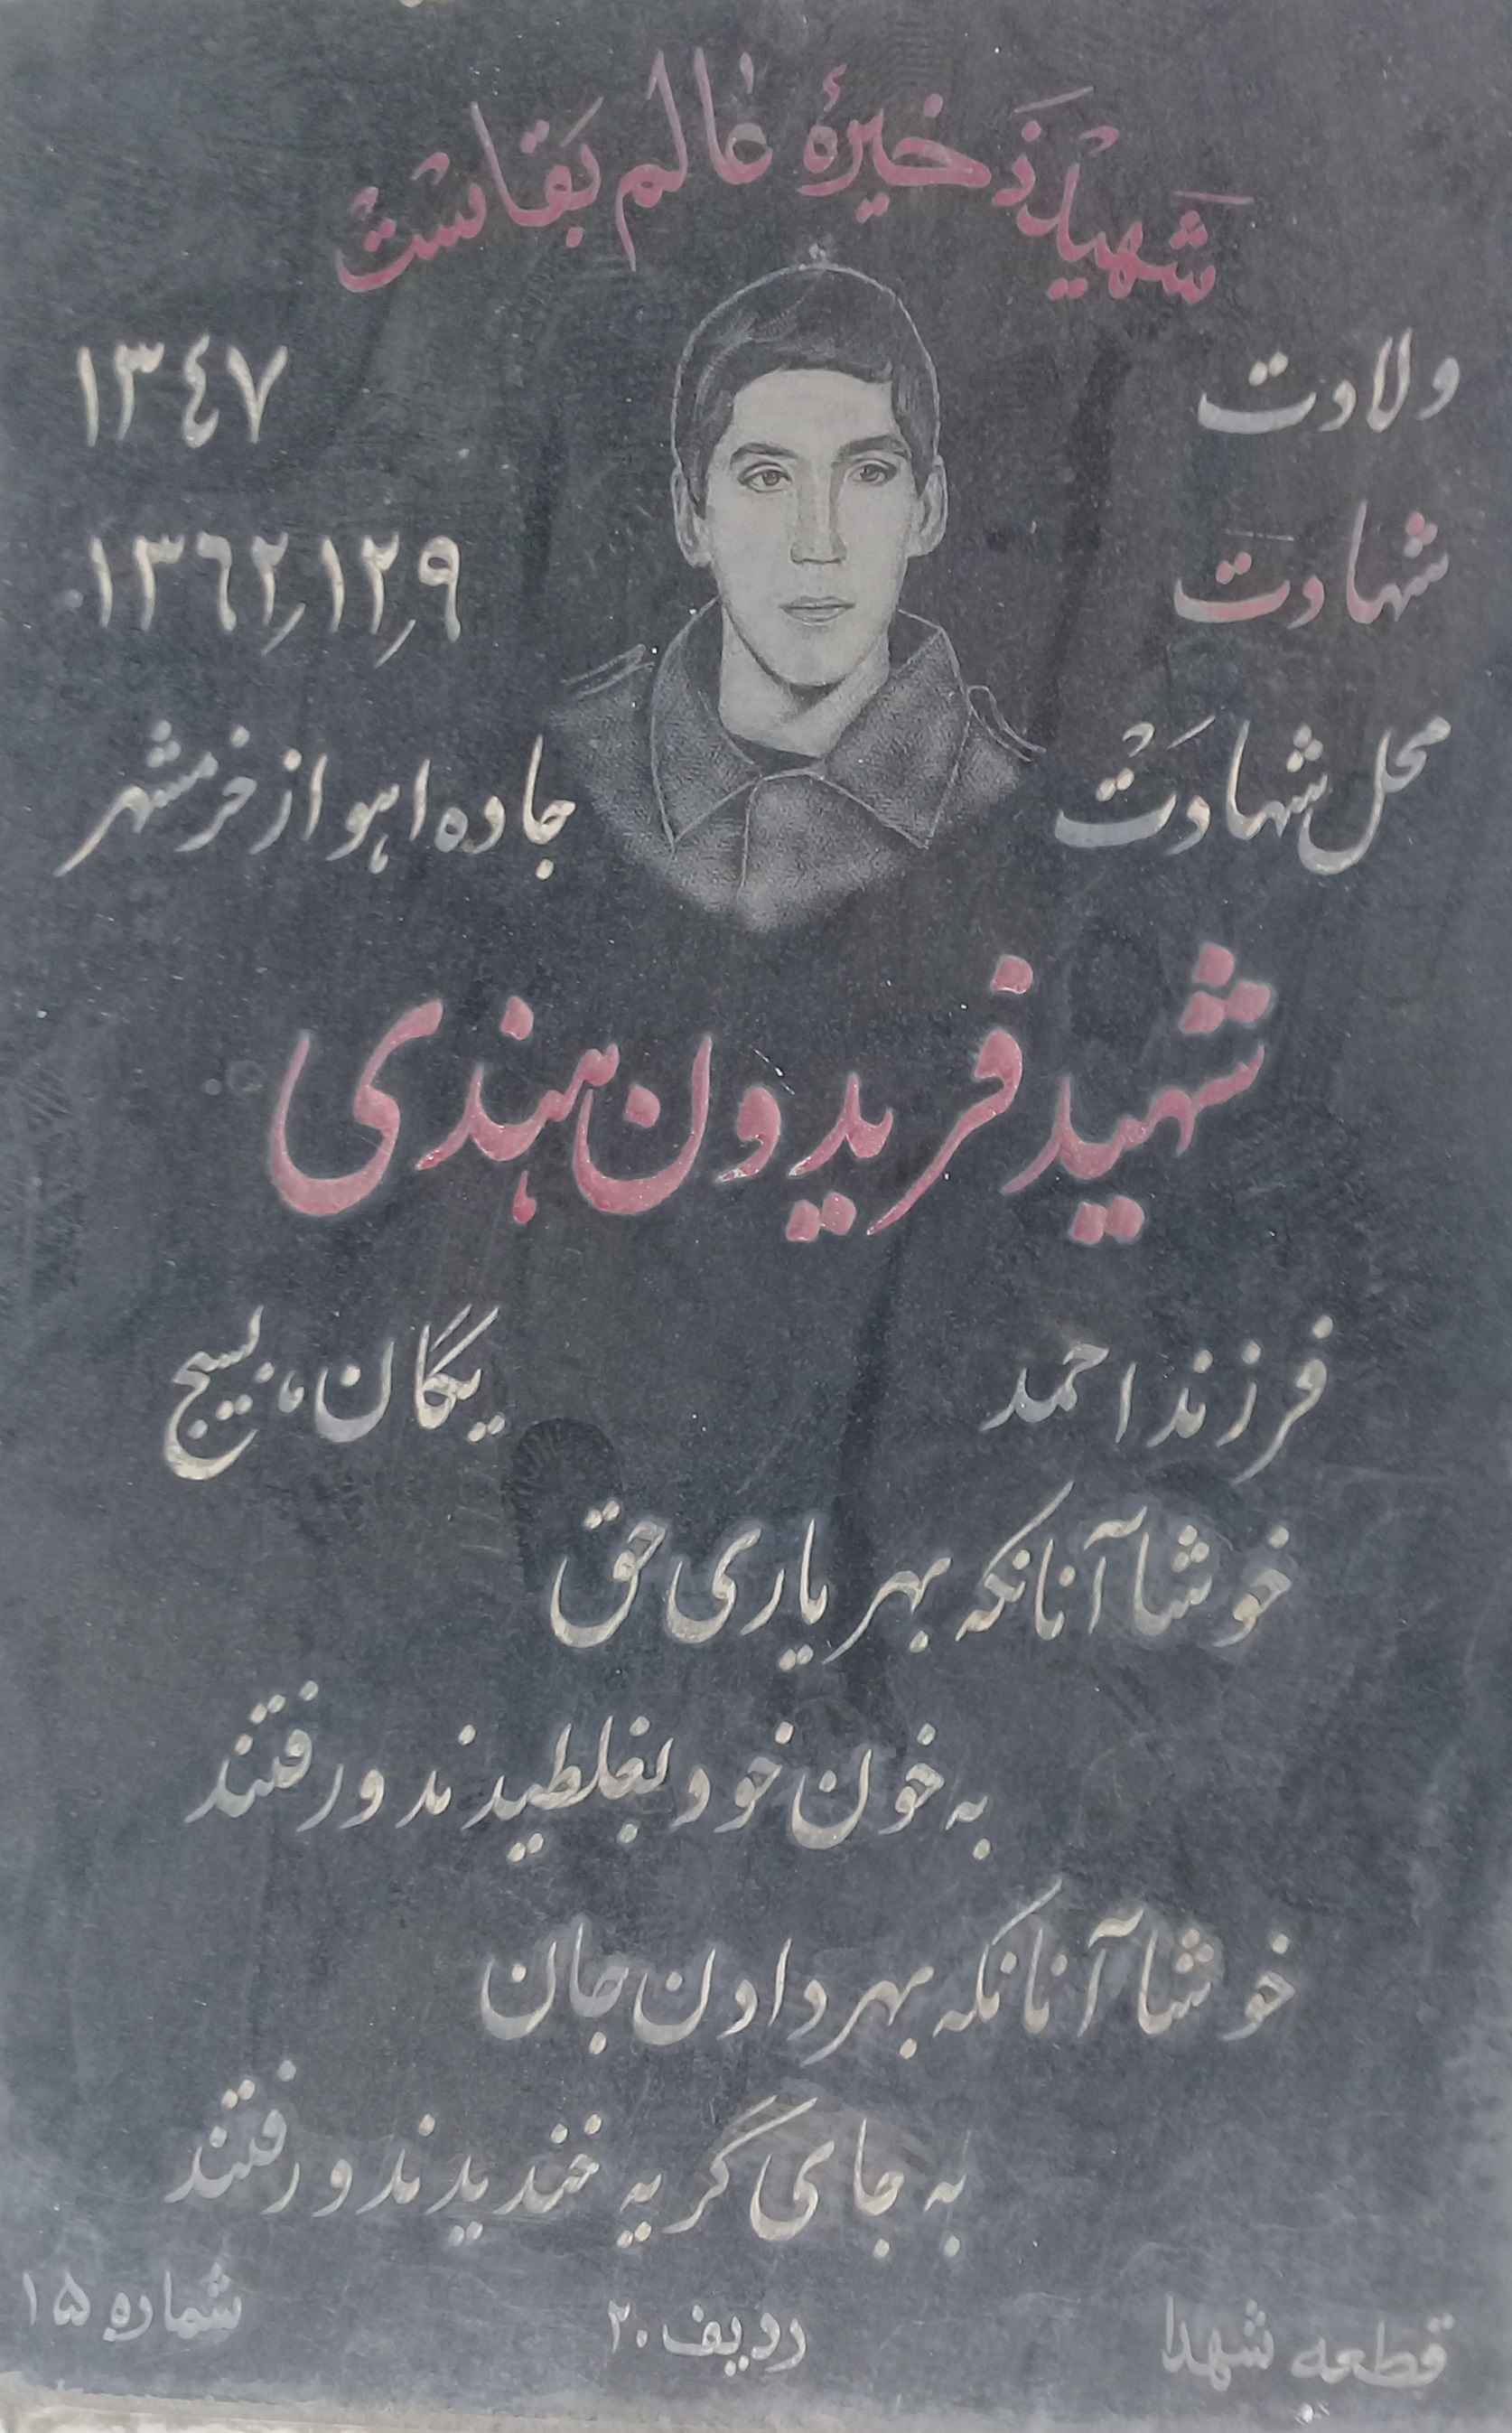 شهید ذخیرهٔ عالم بقاست
ولادت ١٣٤٧
شهادت ١٣٦٢,١٢,٩
محل شهادت جاده اهواز خرمشهر
شهید فریدون هندی
فرزند احمد یگان، بسیج
خوشا آنانکه بهر یاری حق
به خون خود بغلطیدند و رفتند
خوشا آنانکه بهر دادن جان
به جای گریه خندیدند و رفتند
قطعه شهدا ردیف ۲۰ شماره ۱۵